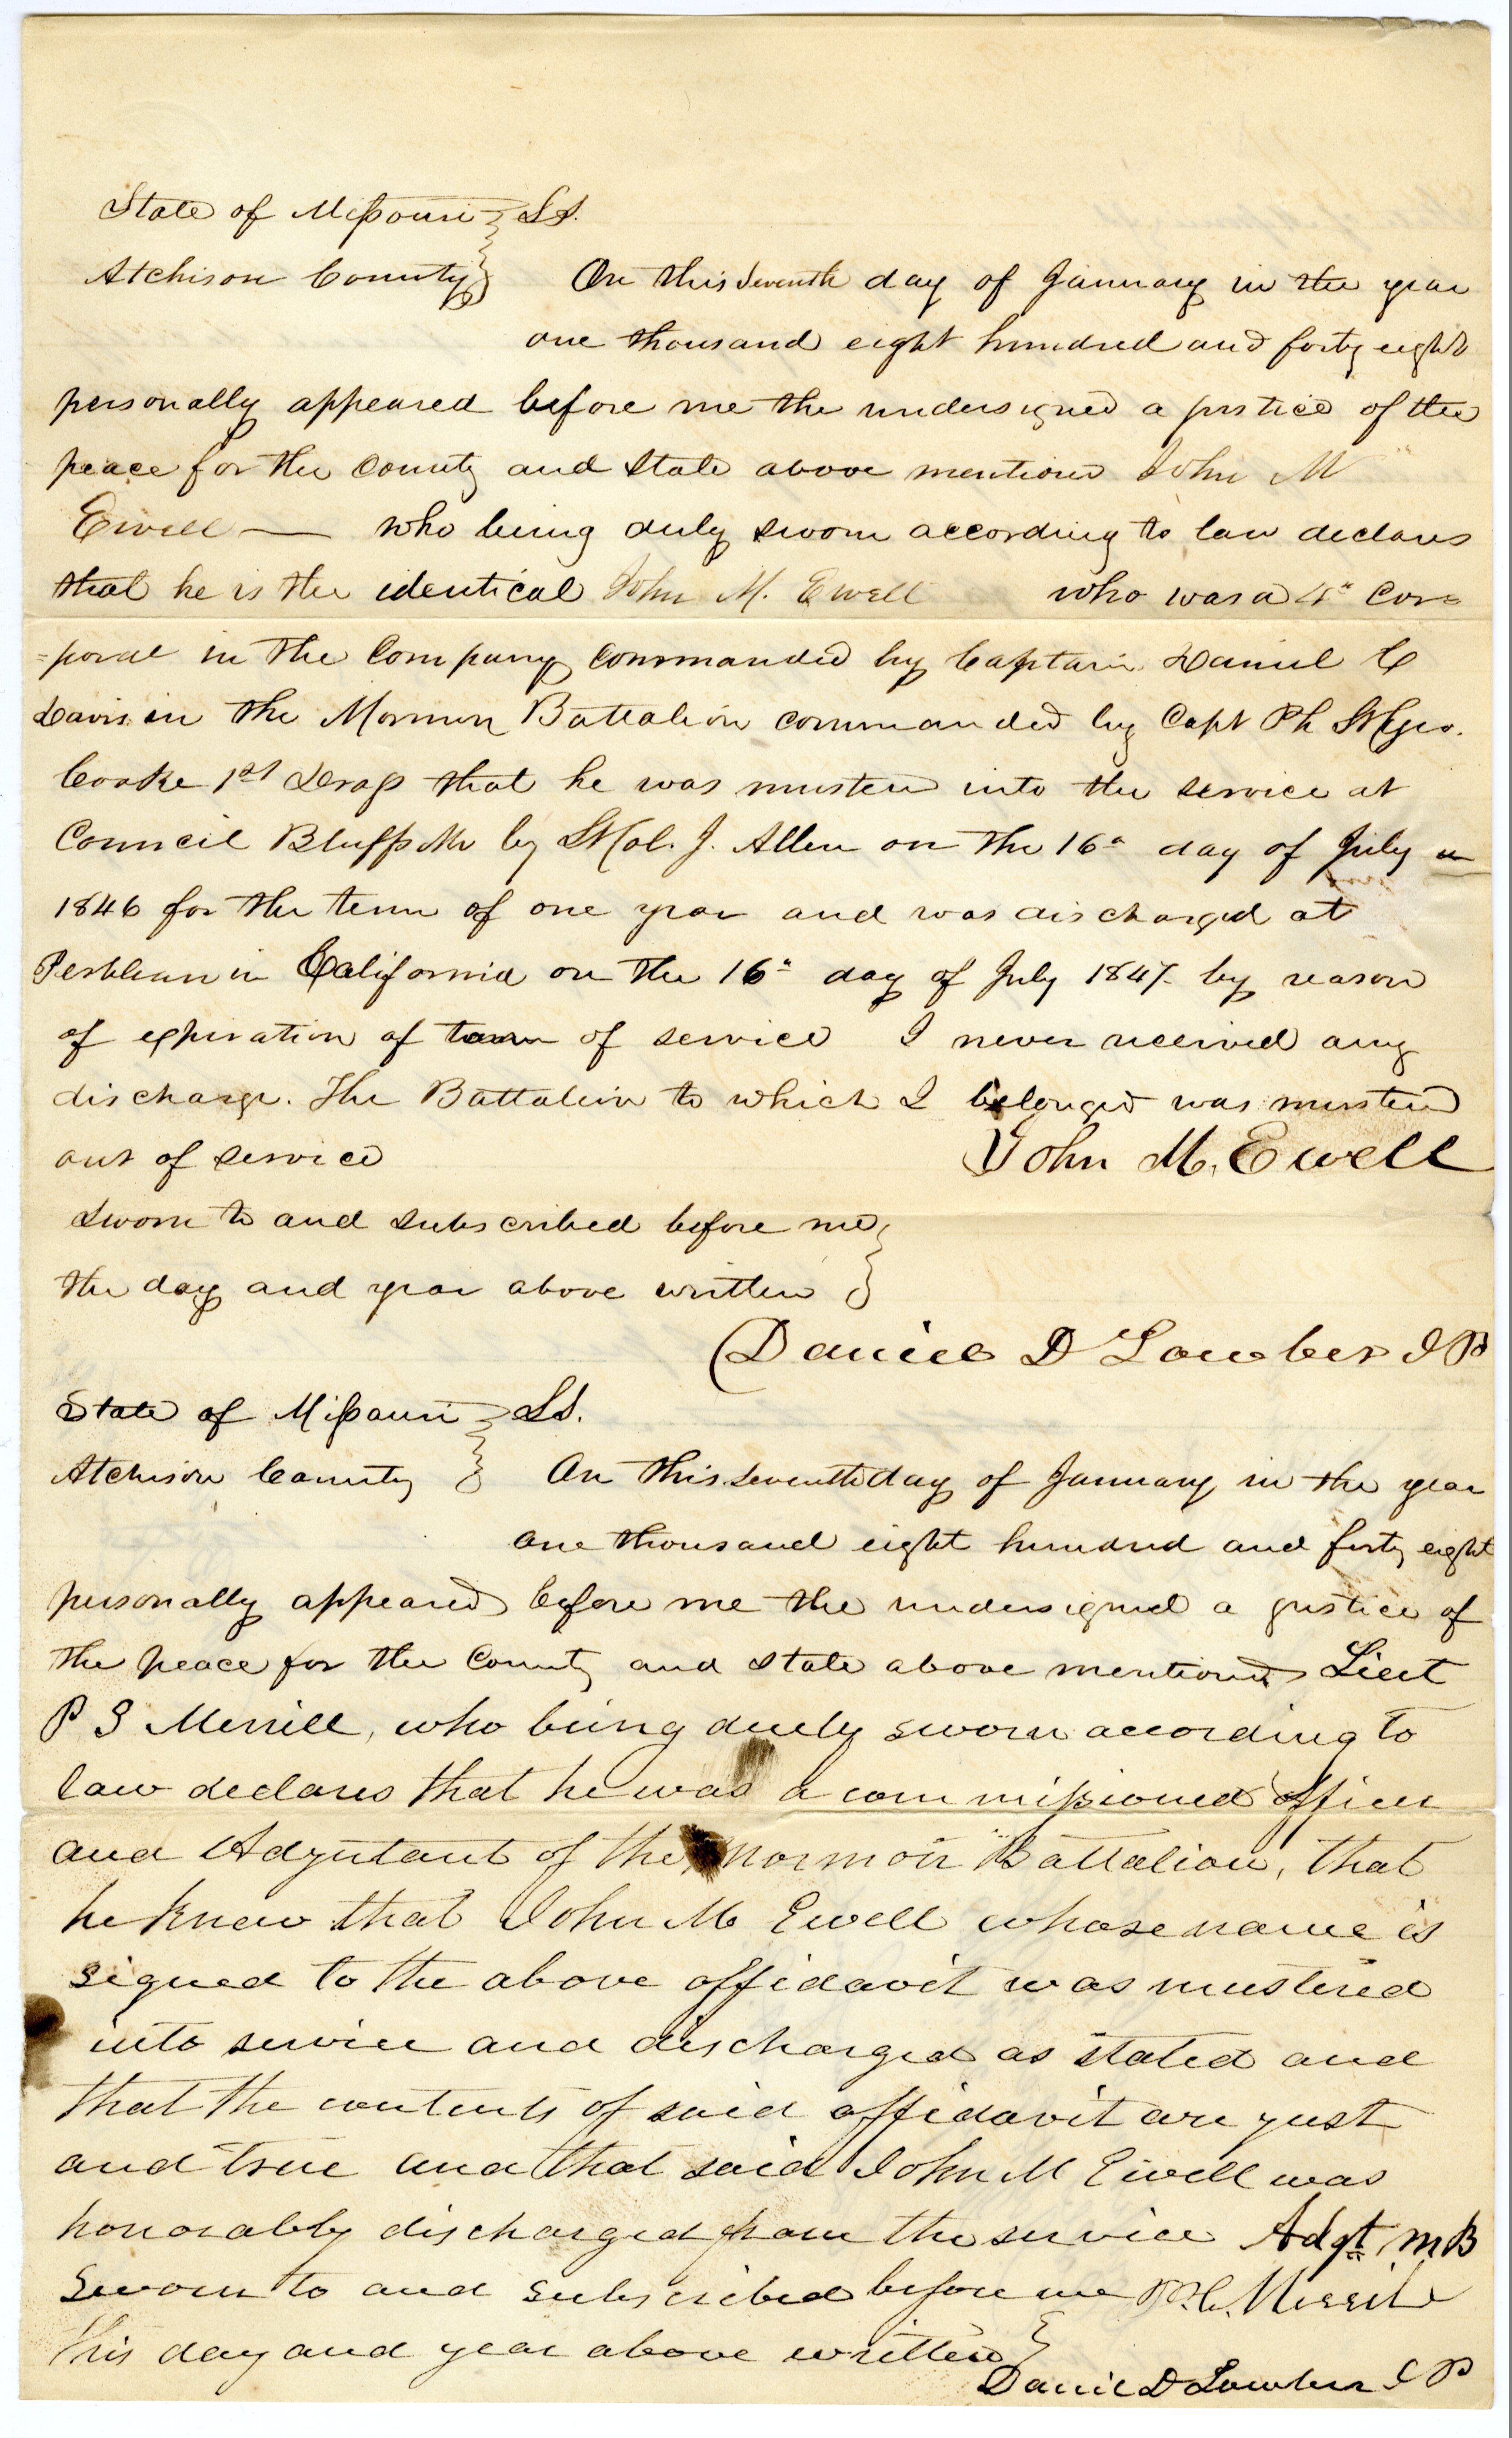 State of Missouri } SS.
Atchison County } On this seventh day of January in the year
one thousand eight hundred and forty eight
personally appeared before me the undersigned a justice of the
peace for the County and State above mentioned John M
Ewell — who being duly sworn according to law declares
that he is the identical John M. Ewell who was a 4th Cor=
=poral in the Company commanded by Captain Daniel C
Davis in the Mormon Battalion commanded by Capt Ph St Geo.
Cooke 1st Drags that he was mustered into the service at
Council Bluffs Mo by Lt Col. J. Allen on the 16th day of July
1846 for the term of one year and was discharged at
in California on the 16th day of July 1847 by reason
of expiration of term of service I never received any
discharge. The Battalion to which I belonged was mustered
out of service John M. Ewell
Sworn to and subscribed before me }
the day and year above written }
Daniel D Lowber J P
State of Missouri } SS.
Atchison County } On this seventh day of January in the year
one thousand eight hundred and forty eight
personally appeared before me the undersigned a justice of
the peace for the County and State above mentioned Lieut
P S Merrill, who being duely sworn according to
law declares that he was a commissioned officer
and Adjutant of the Mormon Battalion, that
he knew that John M Ewell whose name is
signed to the above affidavit was mustered
into service and discharged as stated and
that the contents of said affidavit are just
and true and that said John M Ewell was
honorably discharged from the service Adgt M B
Sworn to and subscribed before me P. C. Merrill
this day and year above written }
Daniel D Lowber J P